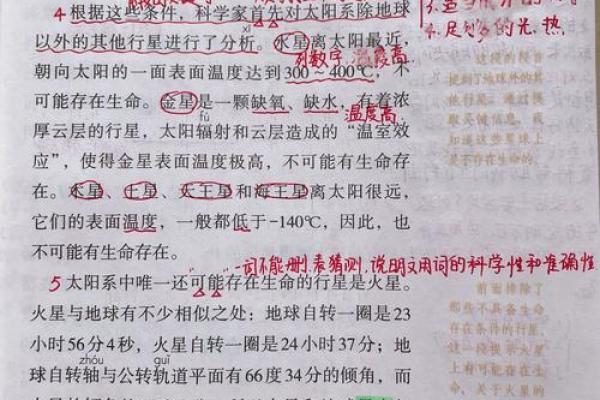 4 根据这些条件，科学家首先对太阳系除地球
4.足够的光、热
xī
以外的其他行星进行了分析。水星离太阳最近，
列数字 温度高
朝向太阳的一面表面温度达到300～400℃，不
可能存在生命。金星是一颗缺氧、缺水，有着浓
温度高
fú
厚云层的行星，太阳辐射和云层造成的“温室效
应”，使得金星表面温度极高，不可能有生命存
在。木星、土星、天王星和海王星离太阳很远，
它们的表面温度，一般都低于-140℃，因此，也
不可能有生命存在。
一词不能删，表猜测，说明文用词的科学性和准确性
5 太阳系中唯一还可能存在生命的行星是火星。
火星与地球有不少相似之处：地球自转一圈是23
小时56分4秒，火星自转一圈是24小时37分；地
zhóu guǐ
球自转轴与公转轨道平面有66度34分的倾角，而
这段的段首
提到了地球外的其
他行星。通过提
取关键信息，我
知道这些星球上
是不存在生命的。
前面排除了
那些不具备生命
存在条件的行星，
这一段提示火星
上有可能存在生
命。关于火星的